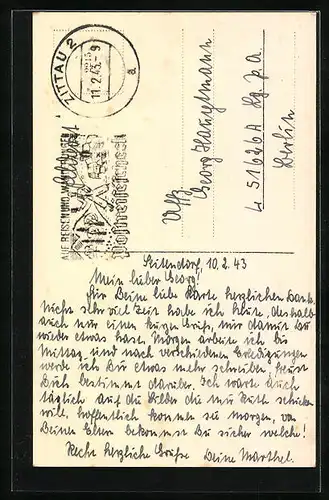 ZITTAU 2
11.2.43.-9
a
Feldpost
AUF REISEN UND WANDERUNGEN
Postreisescheck
Uffz
Georg Hauptmann
L 51626A Lg. p. a.
Berlin
Seitendorf, 10.2.43
Mein lieber Georg!
Für Deine liebe Karte herzlichen Dank.
Nicht sehr viel Zeit habe ich heute, deshalb
auch nur einen kurzen Gruß, nur damit Du
wieder etwas hast. Morgen arbeite ich bis
Mittag, und nach verschiedenen Erledigungen
werde ich Du etwas mehr schreiben, freust
Dich bestimmt darüber. Ich warte auch
täglich auf die Bilder die mir schicken
will, hoffentlich kommen sie morgen, von
Deinen Eltern bekommst Du sicher welche!
Recht herzliche Grüße Deine Marthel.